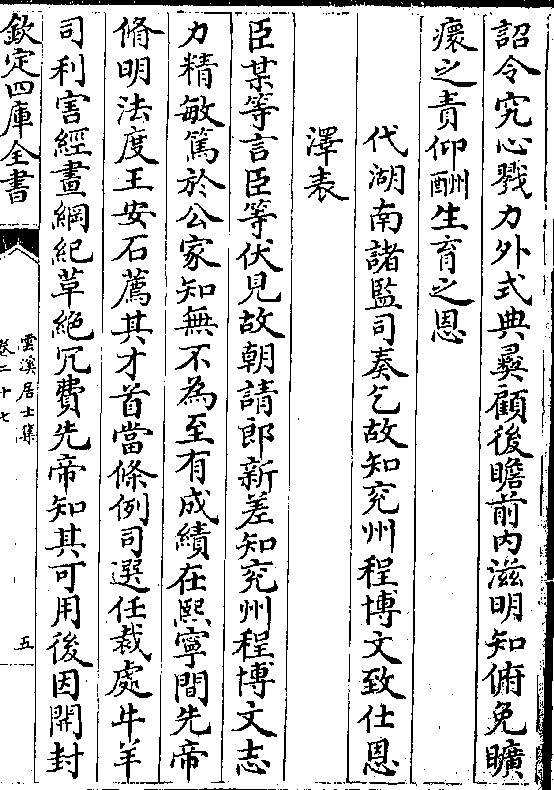 詔令究心戮力外式典彞顧後瞻前内滋明知俯免曠
瘝之責仰酬生育之恩
代湖南諸監司奏乞故知兖州程博文致仕恩
澤表
臣某等言臣等伏見故朝請郎新差知兖州程博文志
力精敏篤於公家知無不為至有成績在熙寧間先帝
脩明法度王安石薦其才首當條例司選任裁處牛羊
司利害經畫綱紀草絶冗費先帝知其可用後因開封
欽定四庫全書
雲溪居士集
卷二十七
五